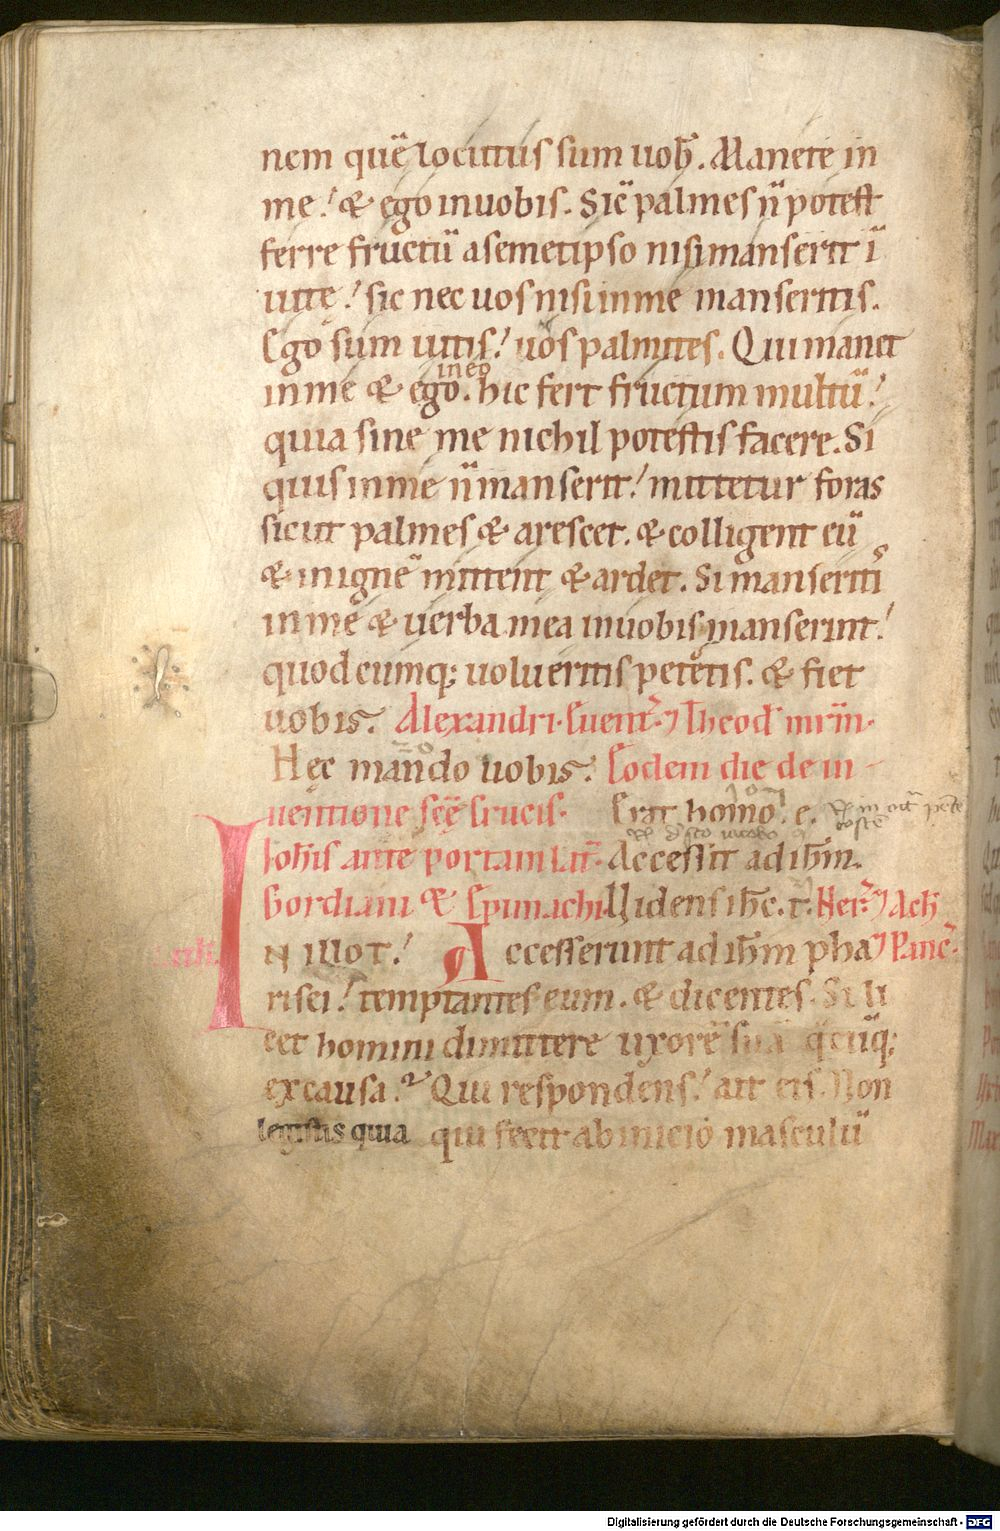 nem quē locutus sum uob̄. Manete in
me! & ego inuobis. Sic̄ palmes n̄ potest
ferre fructū asemetipso nisi manserit ī
uite! sic nec uos nisi inme manseritis.
Ego sum uitis! uos palmites. Qui manet
in eo
inme & ego. hic fert fructum multū!
quia sine me nichil potestis facere. Si
quis inme n̄ manserit! mittetur foras
sicut palmes & arescet. & colligent eū
& inignē mittent & ardet. Si manseritis
inme & uerba mea inuobis manserint!
quodcumq; uolueritis petetis. & fiet
uobis. Alexandri. Euent. ⁊ Theod mr̄m.
Hęc mando uobis. Eodem die de in
uentione sc̄ę crucis. Erat homo. e.
Ioh̄is ante portam lat̄. Accessit ad ih̄m.
Gordiani & Epimachi Uidens ih̄c. t. Nerͥ ⁊ Ach
N ILLOT! Accesserunt ad ih̄m pha ⁊ Panc̄.
risei! temptantes eum. & dicentes. Si li
cet homini dimittere uxorē suā q̄cūq;
ex causa? Qui respondens! ait eis. Non
legistis quia qui fecit ab inicio masculū
Digitalisierung gefördert durch die Deutsche Forschungsgemeinschaft - DFG